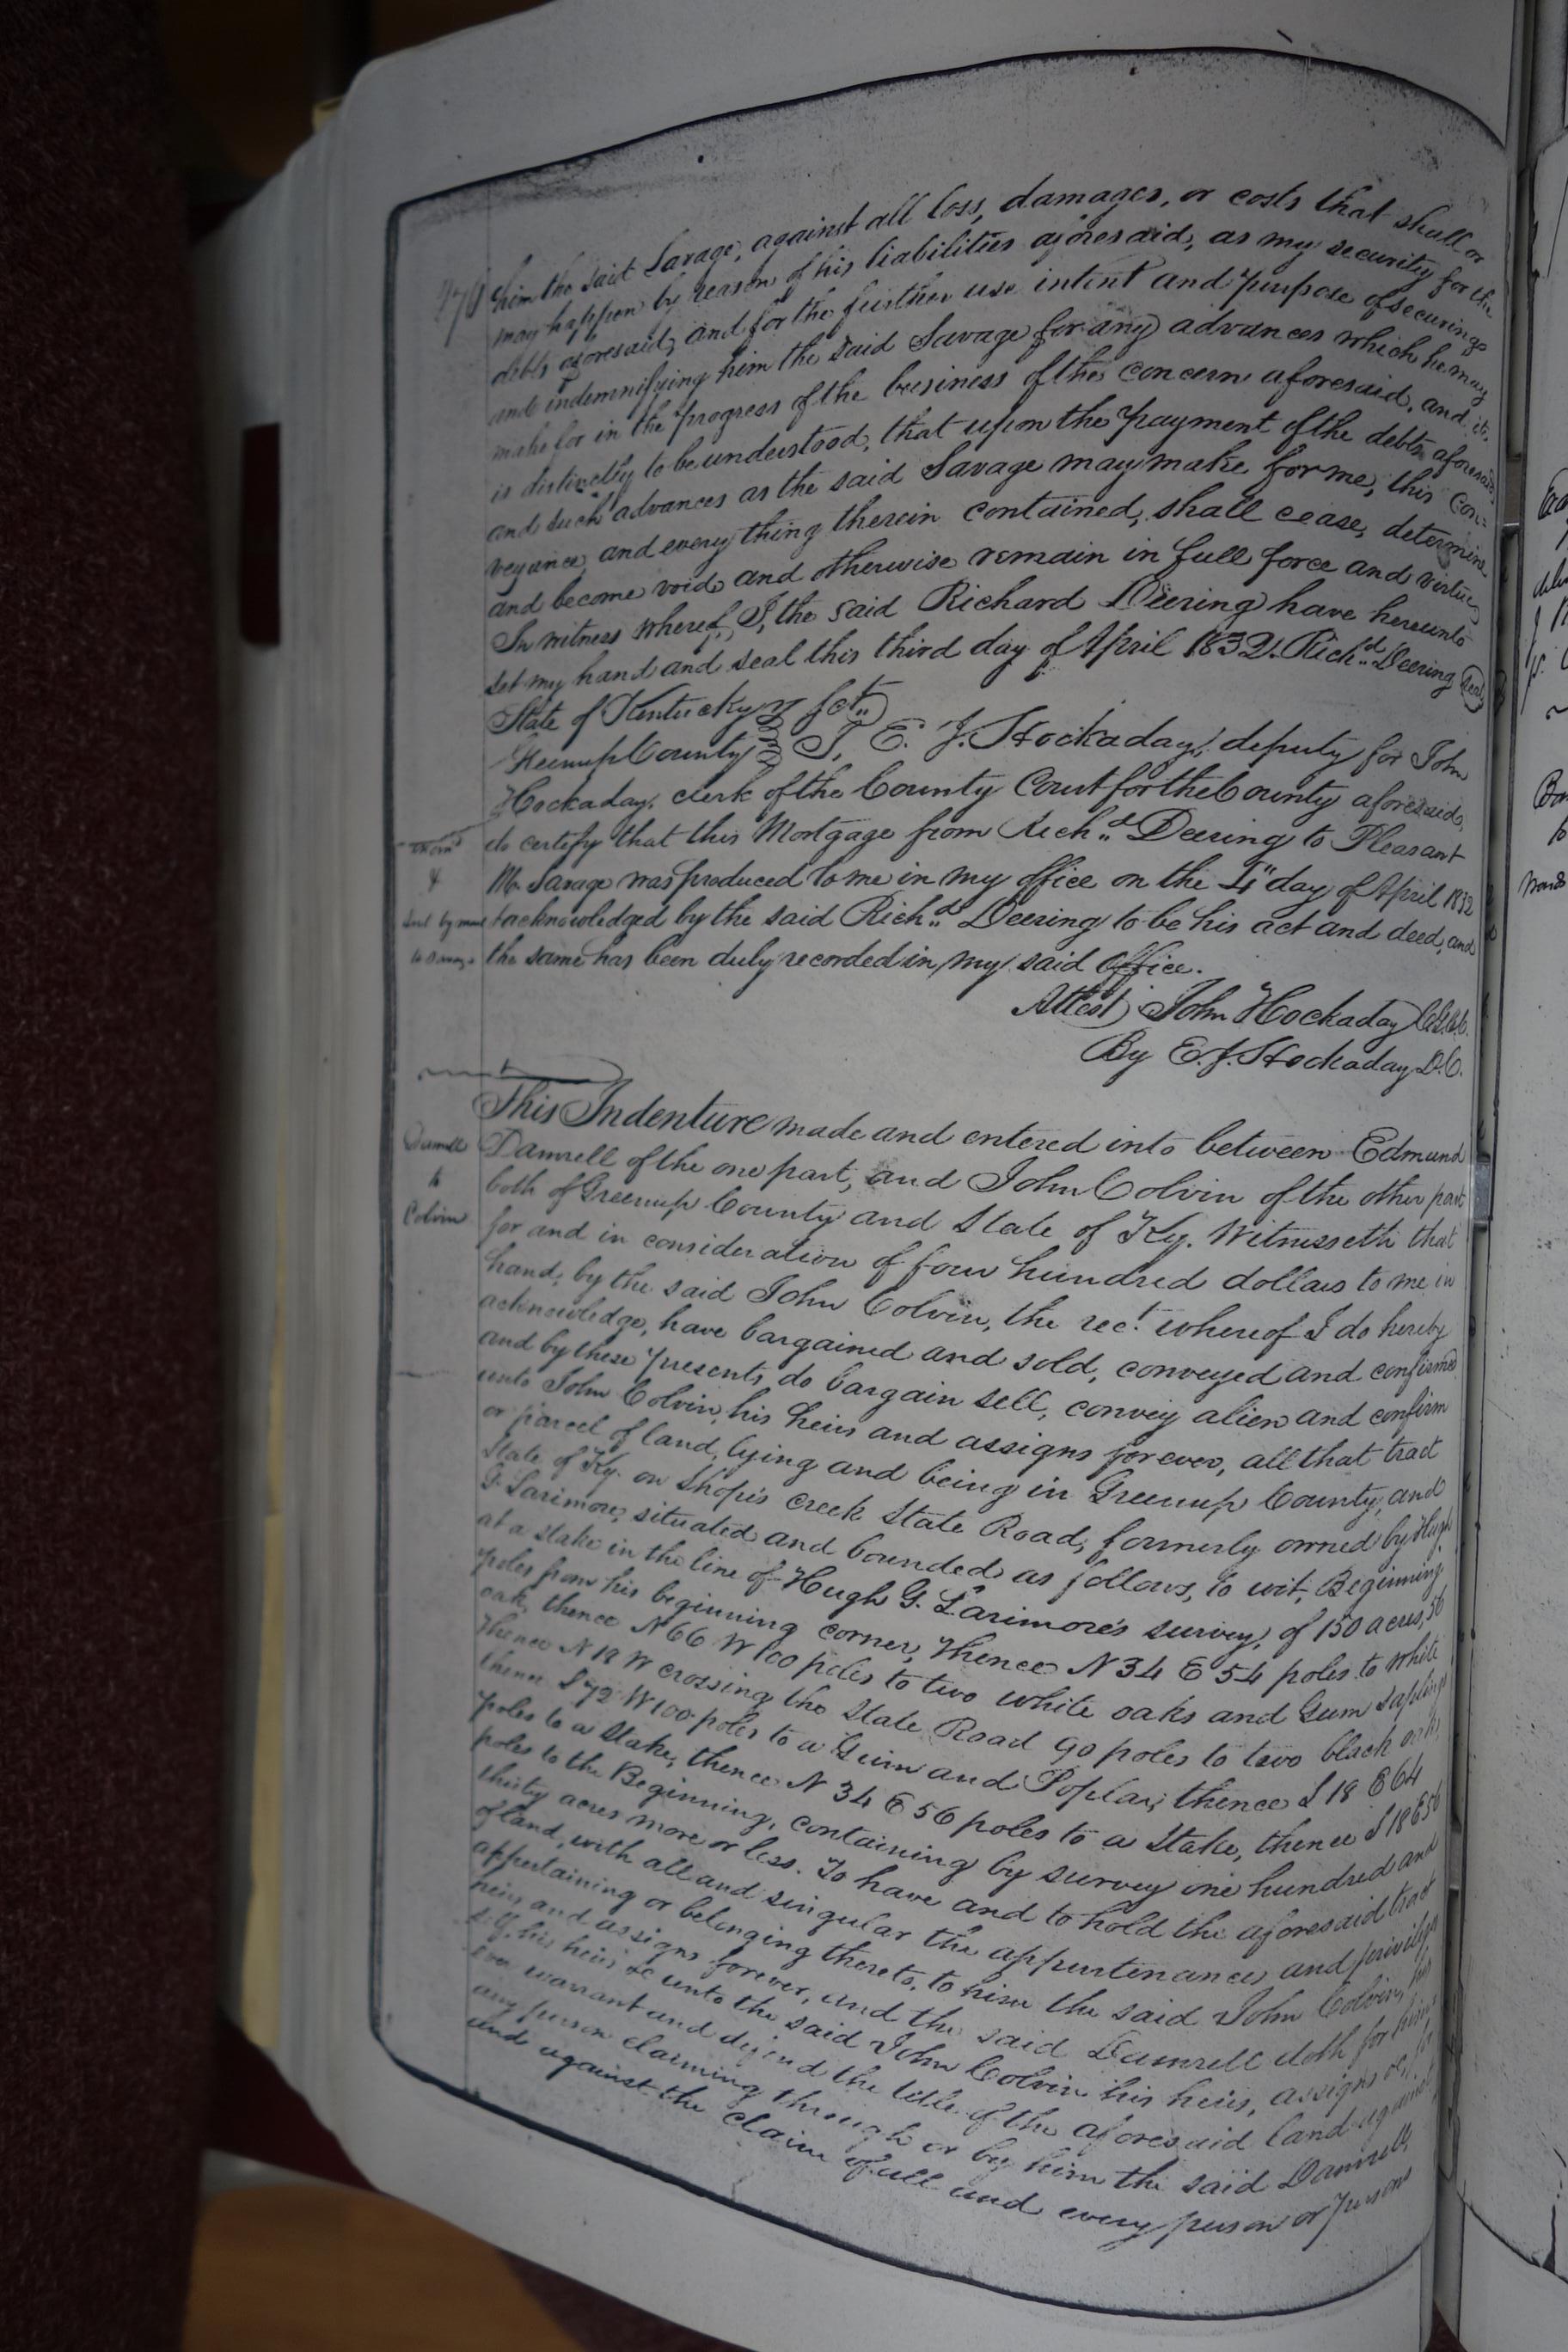 him the said Savage, against all loss, damages, or costs that shall or
may happen by reason of his liabilities aforesaid, as my security for the
debts aforesaid, and for the further use intent and purpose of securing
and indemnifying him the said Savage for any advances which he may
make for in the progress of the business of the concern aforesaid, and it
is distinctly to be understood, that upon the payment of the debts aforesaid
and such advances as the said Savage may make for me, this con=
veyance, and every thing therein contained, shall cease, determine
and become void and otherwise remain in full force and virtue,
In witness whereof, I, the said Richard Deering have hereunto
set my hand and seal this third day of April 1832. Richd Deering Seal
State of Kentucky sct
Greenup County I, E. J. Hockaday, deputy for John
Hockaday, clerk of the County Court for the County aforesaid,
do certify that this Mortgage from Richd Deering to Pleasant
M. Savage was produced to me in my office on the 4" day of April 1832
& acknowledged by the said Richd Deering to be his act and deed, and
the same has been duly recorded in my said office.
Attest John Hockaday C.G.C.C.
By E. J. Hockaday D.C.
This Indenture made and entered into between Edmund
Damrell
to
Colvin
Damrell of the one part, and John Colvin of the other part
both of Greenup County and State of Ky. Witnesseth that
for and in consideration of four hundred dollars to me in
hand, by the said John Colvin, the rect. whereof I do hereby
acknowledge, have bargained and sold, conveyed and confirmed
and by these presents, do bargain sell, convey alien and confirm
unto John Colvin, his heirs and assigns forever, all that tract
or parcel of land, lying and being in Greenup County, and
State of Ky. on Shope's creek State Road, formerly owned by Hugh
G. Larimore, situated and bounded as follows, to wit, Beginning
at a stake in the line of Hugh G. Larimore's survey, of 150 acres, 56
poles from his beginning corner, Thence N 34 E 54 poles to white
oak, thence N 66 W 100 poles to two white oaks and Gum saplings
Thence N 18 W crossing the State Road 90 poles to two black oaks,
thence S 72 W 100 poles to a Gum and Poplar, thence S 18 E 64
poles to a Stake, thence N 34 E 56 poles to a Stake, thence S 18 E 56
poles to the Beginning, containing by survey one hundred and
thirty acres more or less. To have and to hold the aforesaid tract
of land, with all and singular the appurtenances and privileges
appertaining or belonging thereto, to him the said John Colvin, his
heirs and assigns forever, and the said Damrell doth for him
self, his heirs &c unto the said John Colvin his heirs, assigns &c, for
ever warrant and defend the title of the aforesaid land against
any person claiming through or by him the said Damrell,
and against the claim of all and every person or persons